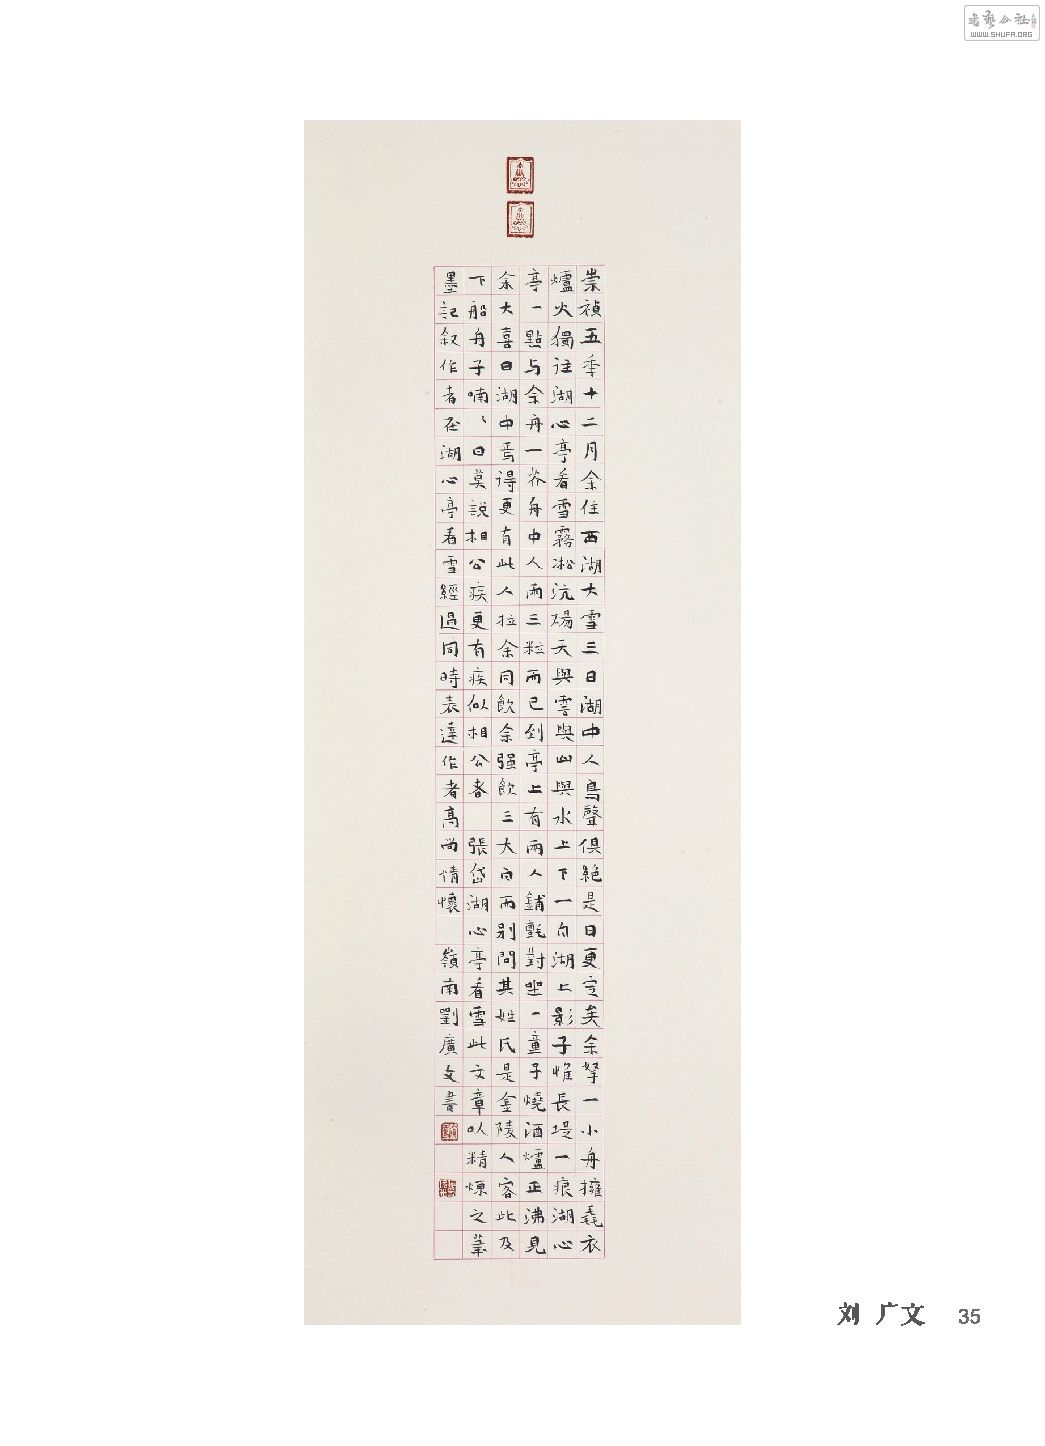 崇禎五季十二月余住西湖大雪三日湖中人鳥聲俱絕是日更定矣余拏一小舟擁毳衣
爐火獨往湖心亭看雪霧凇沆碭天與雲與山與水上下一白湖上影子惟長堤一痕湖心
亭一點与余舟一芥舟中人兩三粒而已到亭上有兩人鋪氈對坐一童子燒酒爐正沸見
余大喜曰湖中焉得更有此人拉余同飲余强飲三大白而別問其姓氏是金陵人客此及
下船舟子喃、曰莫說相公疾更有疾似相公者 張岱湖心亭看雪此文章以精煉之筆
墨記叙作者在湖心亭看雪經過同時表達作者高尚情懷 嶺南劉廣文書
刘 广文 35
WWW.SHUFA.ORG